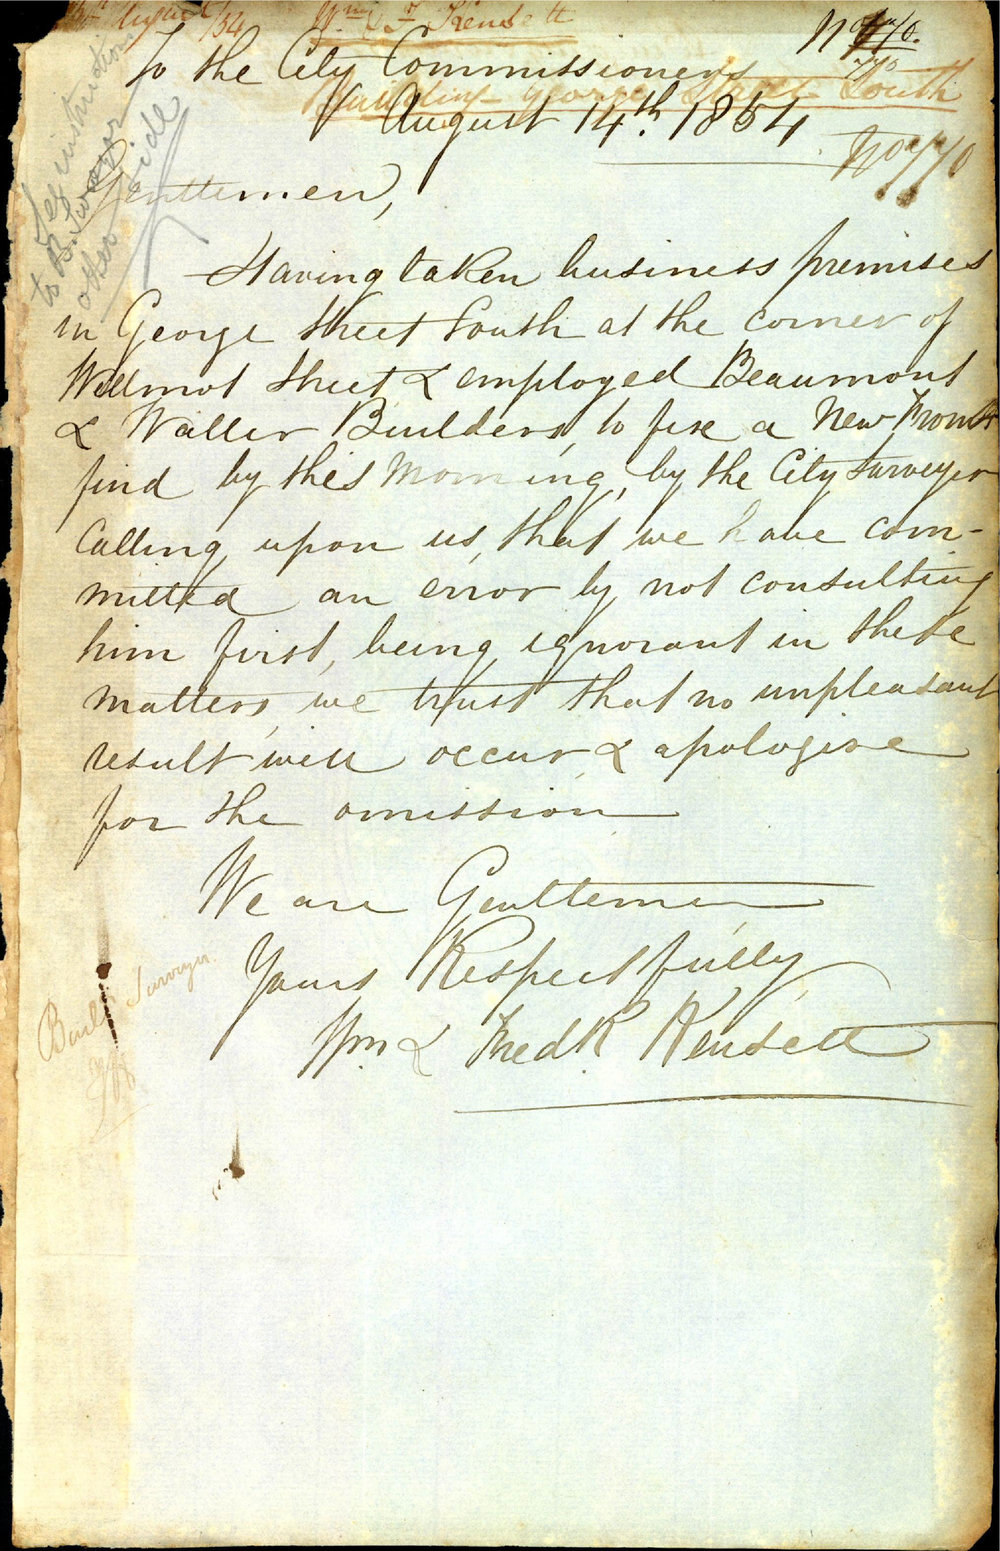 August /54 Wm & F Kensett
No 770.
770
To the City Commissioners
Building George Street South
August 14th. 1854
No 770
See instructions
to B. Surveyor
other side
Gentlemen,
Having taken business premises
in George Street South at the corner of
Willmot Street & employed Beaumont
& Waller Builders, to fix a New Front
find by this Morning, by the City Surveyor
Calling upon us, that we have com-
mitted an error by not consulting
him first, being ignorant in these
matters, we trust that no unpleasant
result will occur & apologise
for the omission
We are Gentlemen
Yours Respectfully
Wm. & Fredk. Kensett
Build. Surveyor.